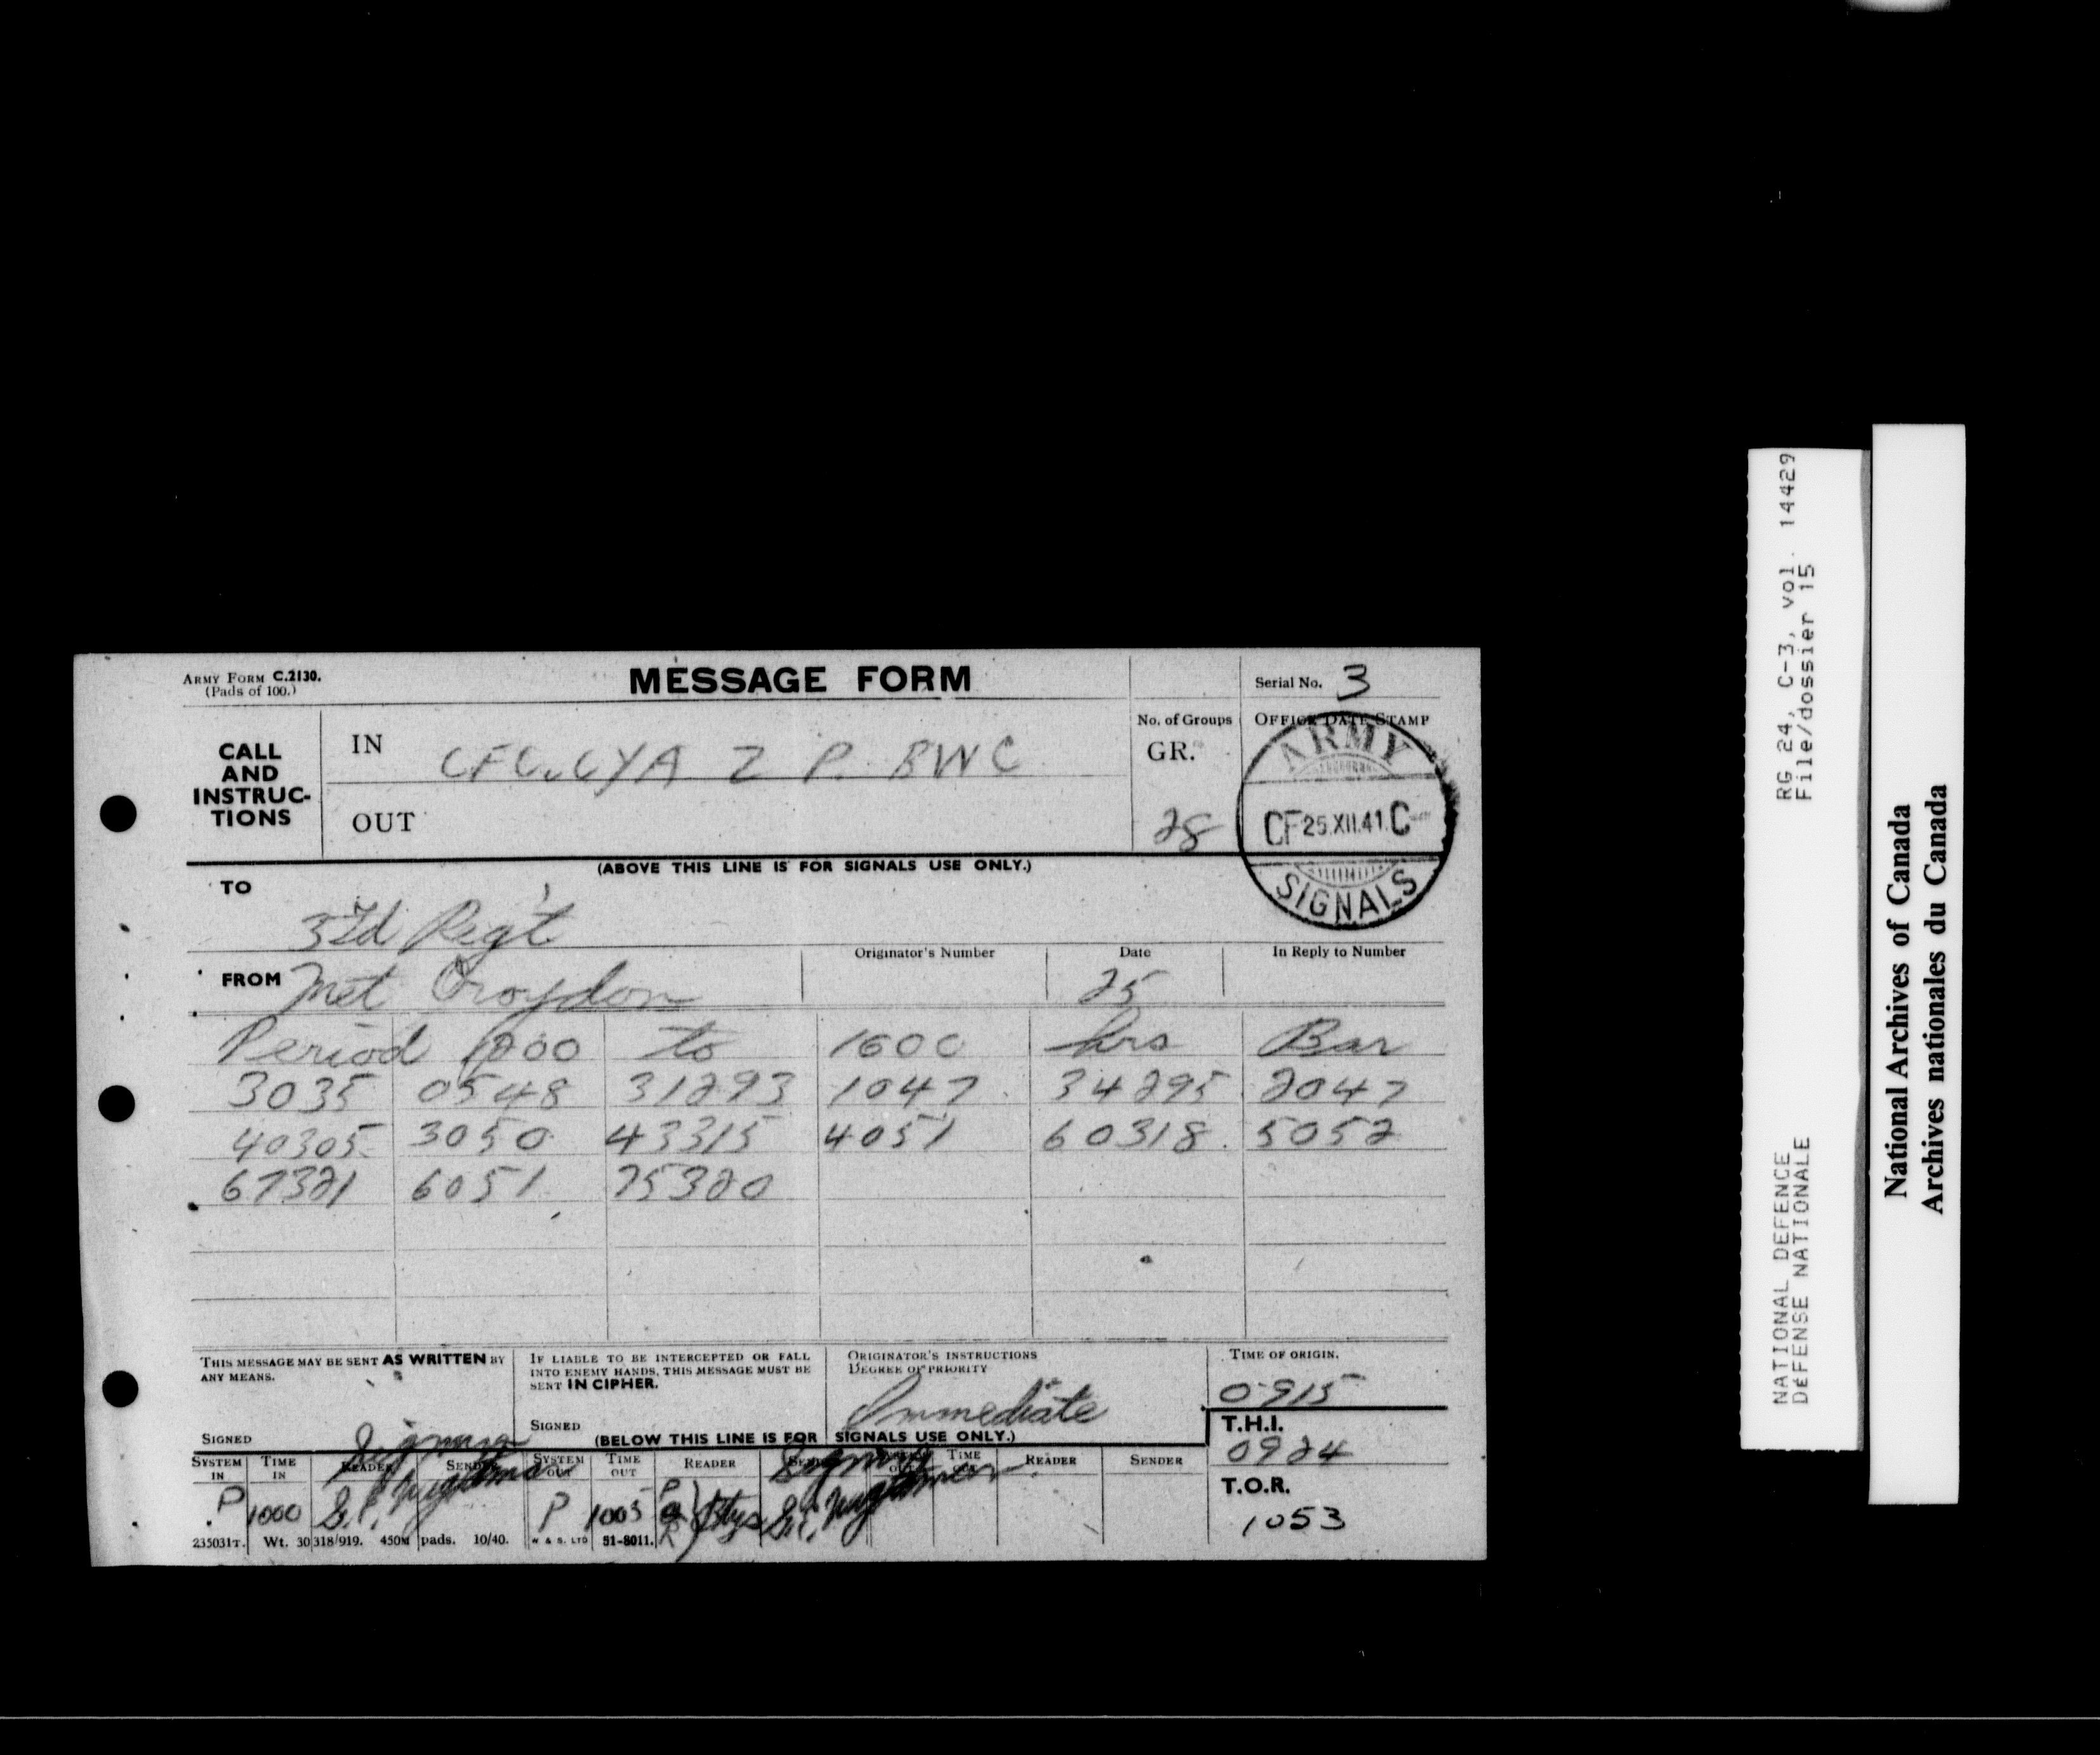 ARMY FORM C.2130.
(Pads of 100.)
MESSAGE FORM
Serial No. 3
CALL AND INSTRUC-TIONS
IN CFC. CYA Z P. BWC
OUT
No. of Groups
GR.
28
OFFICE DATE STAMP
ARMY
CF 25.XII.41 C
SIGNALS
(ABOVE THIS LINE IS FOR SIGNALS USE ONLY.)
TO
3rd Reg't
FROM Met Croydon
Originator's Number
Date
25
In Reply to Number
Period 1000 to 1600 hrs Bar
3035 0548 31293 1047 34295 2047
40305 3050 43315 4051 60318 5052
67321 6051 75320
THIS MESSAGE MAY BE SENT AS WRITTEN BY
ANY MEANS.
SIGNED
IF LIABLE TO BE INTERCEPTED OR FALL
INTO ENEMY HANDS, THIS MESSAGE MUST BE
SENT IN CIPHER.
SIGNED
ORIGINATOR'S INSTRUCTIONS
DEGREE OF PRIORITY
Immediate
TIME OF ORIGIN.
0915
(BELOW THIS LINE IS FOR SIGNALS USE ONLY.)
T.H.I.
0924
T.O.R.
1053
SYSTEM IN TIME IN READER SENDER SYSTEM OUT TIME OUT READER SENDER TIME READER SENDER
P 1000 P 1003
235031T. Wt. 30318/919. 450M pads. 10/40. W & S. LTD 51-8011.
RG 24, C-3, vol. 14429
File/dossier 15
NATIONAL DEFENCE
DÉFENSE NATIONALE
National Archives of Canada
Archives nationales du Canada